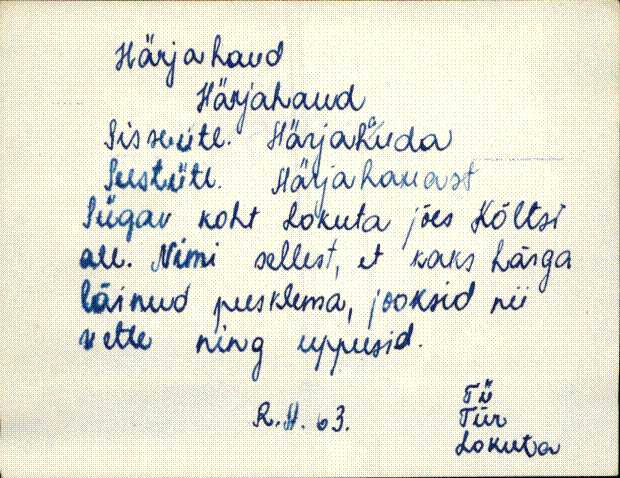 Härjahaud
Härjahaud
Sisseütl. Härjahauda
Seestütl. Härjahauast
Sügav koht Lokuta jões Kõltsi
all. Nimi sellest, et kaks härga
läinud pusklema, jooksid nii
vette ning uppusid.
R.H. 63.
Tü
Tür
Lokuta